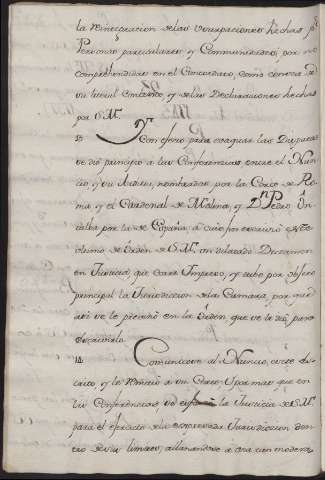 la reintegracion de las Usurpaciones hechas pr.
Personas particulares y Communidades, por no
comprehendidas en el Concordato, como consta de
su literal contexto, y de las Declaraciones hechas
por S. M.
13 Con efecto para evaquar las Disputas
se dió principio a las Conferencias entre el Nun-
cio, y su Auditor, nombrados por la Corte de Ro-
ma, y el Cardenal de Molina, y Dn. Pedro On-
talba por la de España, a cuio fin escrivió este
ultimo de orden de S. M. un dilatado Dictamen
en Justicia que corre Impreso, y tubo por objeto
principal la Jurisdiccion de la Camara, por
se le previno en la orden que se le dió para
escrivirlo.
14 Comunicose al Nuncio, este es-
crito, y le remitió a su Corte, y por mas que en
las Conferencias se la Justicia de S. M.
para el exercicio de la expresada Jurisdiccion den-
tro de sus limites, allanandose a una con modera-